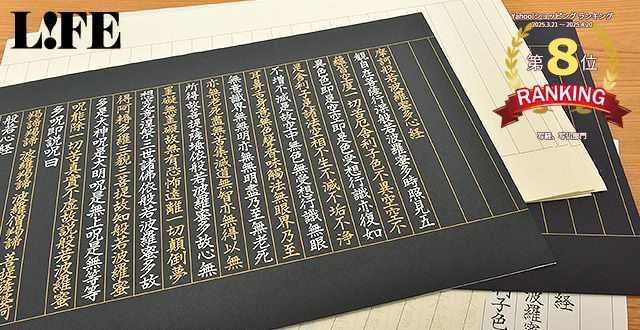 L!FE
Yahoo!ショッピングランキング
2025.3.21～2025.4.20
第8位
RANKING
写経、写仏部門
摩訶般若波羅蜜多心経
観自在菩薩行深般若波羅蜜多時照見五
蘊皆空度一切苦厄舎利子色不異空空不
異色色即是空空即是色受想行識亦復如
是舎利子是諸法空相不生不滅不垢不浄
不増不減是故空中無色無受想行識無眼
耳鼻舌身意無色声香味触法無眼界乃至
無意識界無無明亦無無明尽乃至無老死
亦無老死尽無苦集滅道無智亦無得以無
所得故菩提薩埵依般若波羅蜜多故心無
罣礙無罣礙故無有恐怖遠離一切顛倒夢
想究竟涅槃三世諸佛依般若波羅蜜多故
得阿耨多羅三藐三菩提故知般若波羅蜜
多是大神呪是大明呪是無上呪是無等等
呪能除一切苦真実不虚故説般若波羅蜜
多呪即説呪曰
羯諦羯諦 波羅羯諦 波羅僧羯諦 菩提薩婆訶
般若心経
経
波羅蜜
利子色